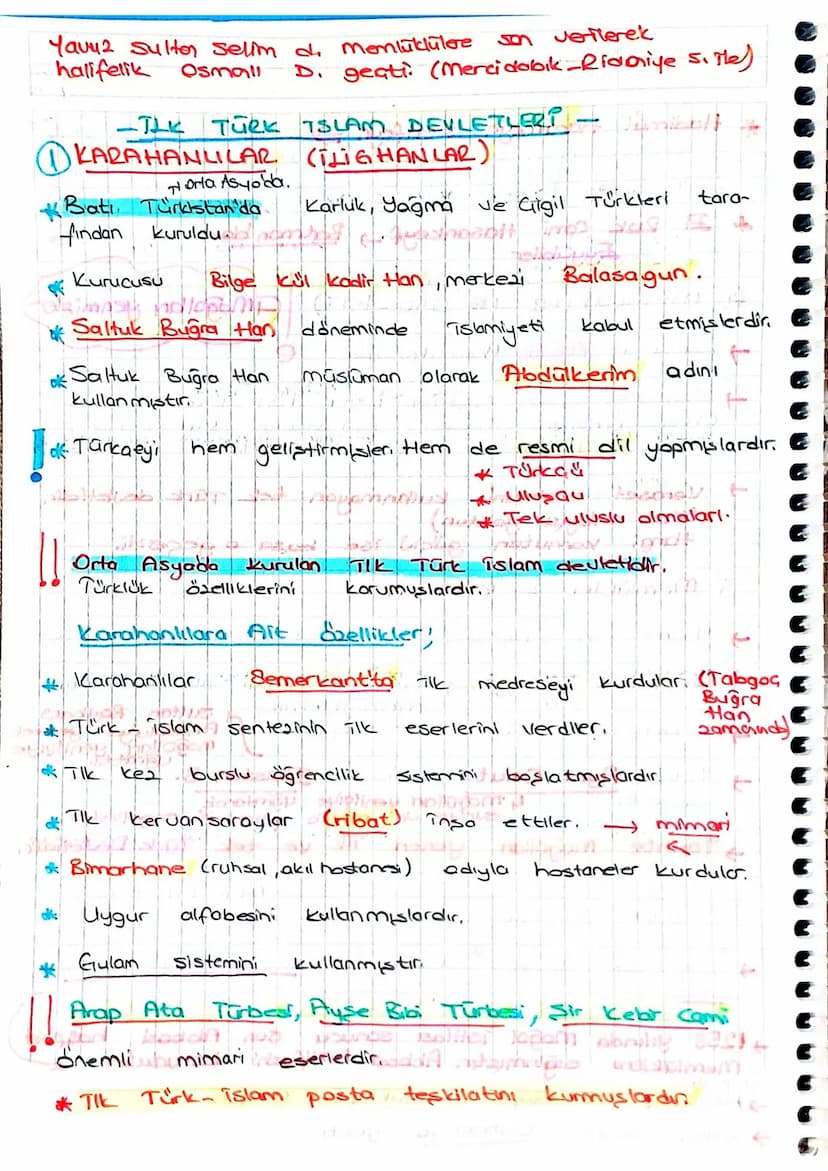 Yavuz Sultan Selim d. memlüklülere son verilerek
halifelik Osmalı D. geçti. (Mercidabık-Ridaniye s. ile)
- İLK TÜRK İSLAM DEVLETLERİ -
① KARAHANLILAR (İLİGHANLAR)
→ Orta Asya'da.
* Batı Türkistan'da Karluk, Yağma ve Çigil Türkleri tara-
fından kuruldu
* Kurucusu Bilge Kül Kadir Han, merkezi Balasagun.
* Saltuk Buğra Han döneminde İslamiyeti kabul etmişlerdir.
* Saltuk Buğra Han müslüman olarak Abdülkerim adını
kullanmıştır.
! * Türkçeyi hem geliştirmişler. Hem de resmi dil yapmışlardır.
* Türkçü
* Ulusçu
* Tek uluslu olmaları.
!! Orta Asyada kurulan ilk Türk İslam devletidir.
Türklük özelliklerini korumuşlardır.
Karahanlılara Ait özellikler;
* Karahanlılar Semerkant'ta ilk medreseyi kurdular. (Tabgaç
Buğra
Han
zamanında)
* Türk - İslam sentezinin ilk eserlerini verdiler.
* İlk kez burslu öğrencilik sistemini başlatmışlardır.
* İlk kervansaraylar (ribat) inşa ettiler. → mimari
* Bimarhane (ruhsal, akıl hastanesi) adıyla hastaneler kurdular.
* Uygur alfabesini kullanmışlardır.
* Gulam sistemini kullanmıştır.
!! Arap Ata Türbesi, Ayşe Bibi Türbesi, Şir Kebir Cami
önemli mimari eserlerdir.
* İlk Türk-İslam posta teşkilatını kurmuşlardır.